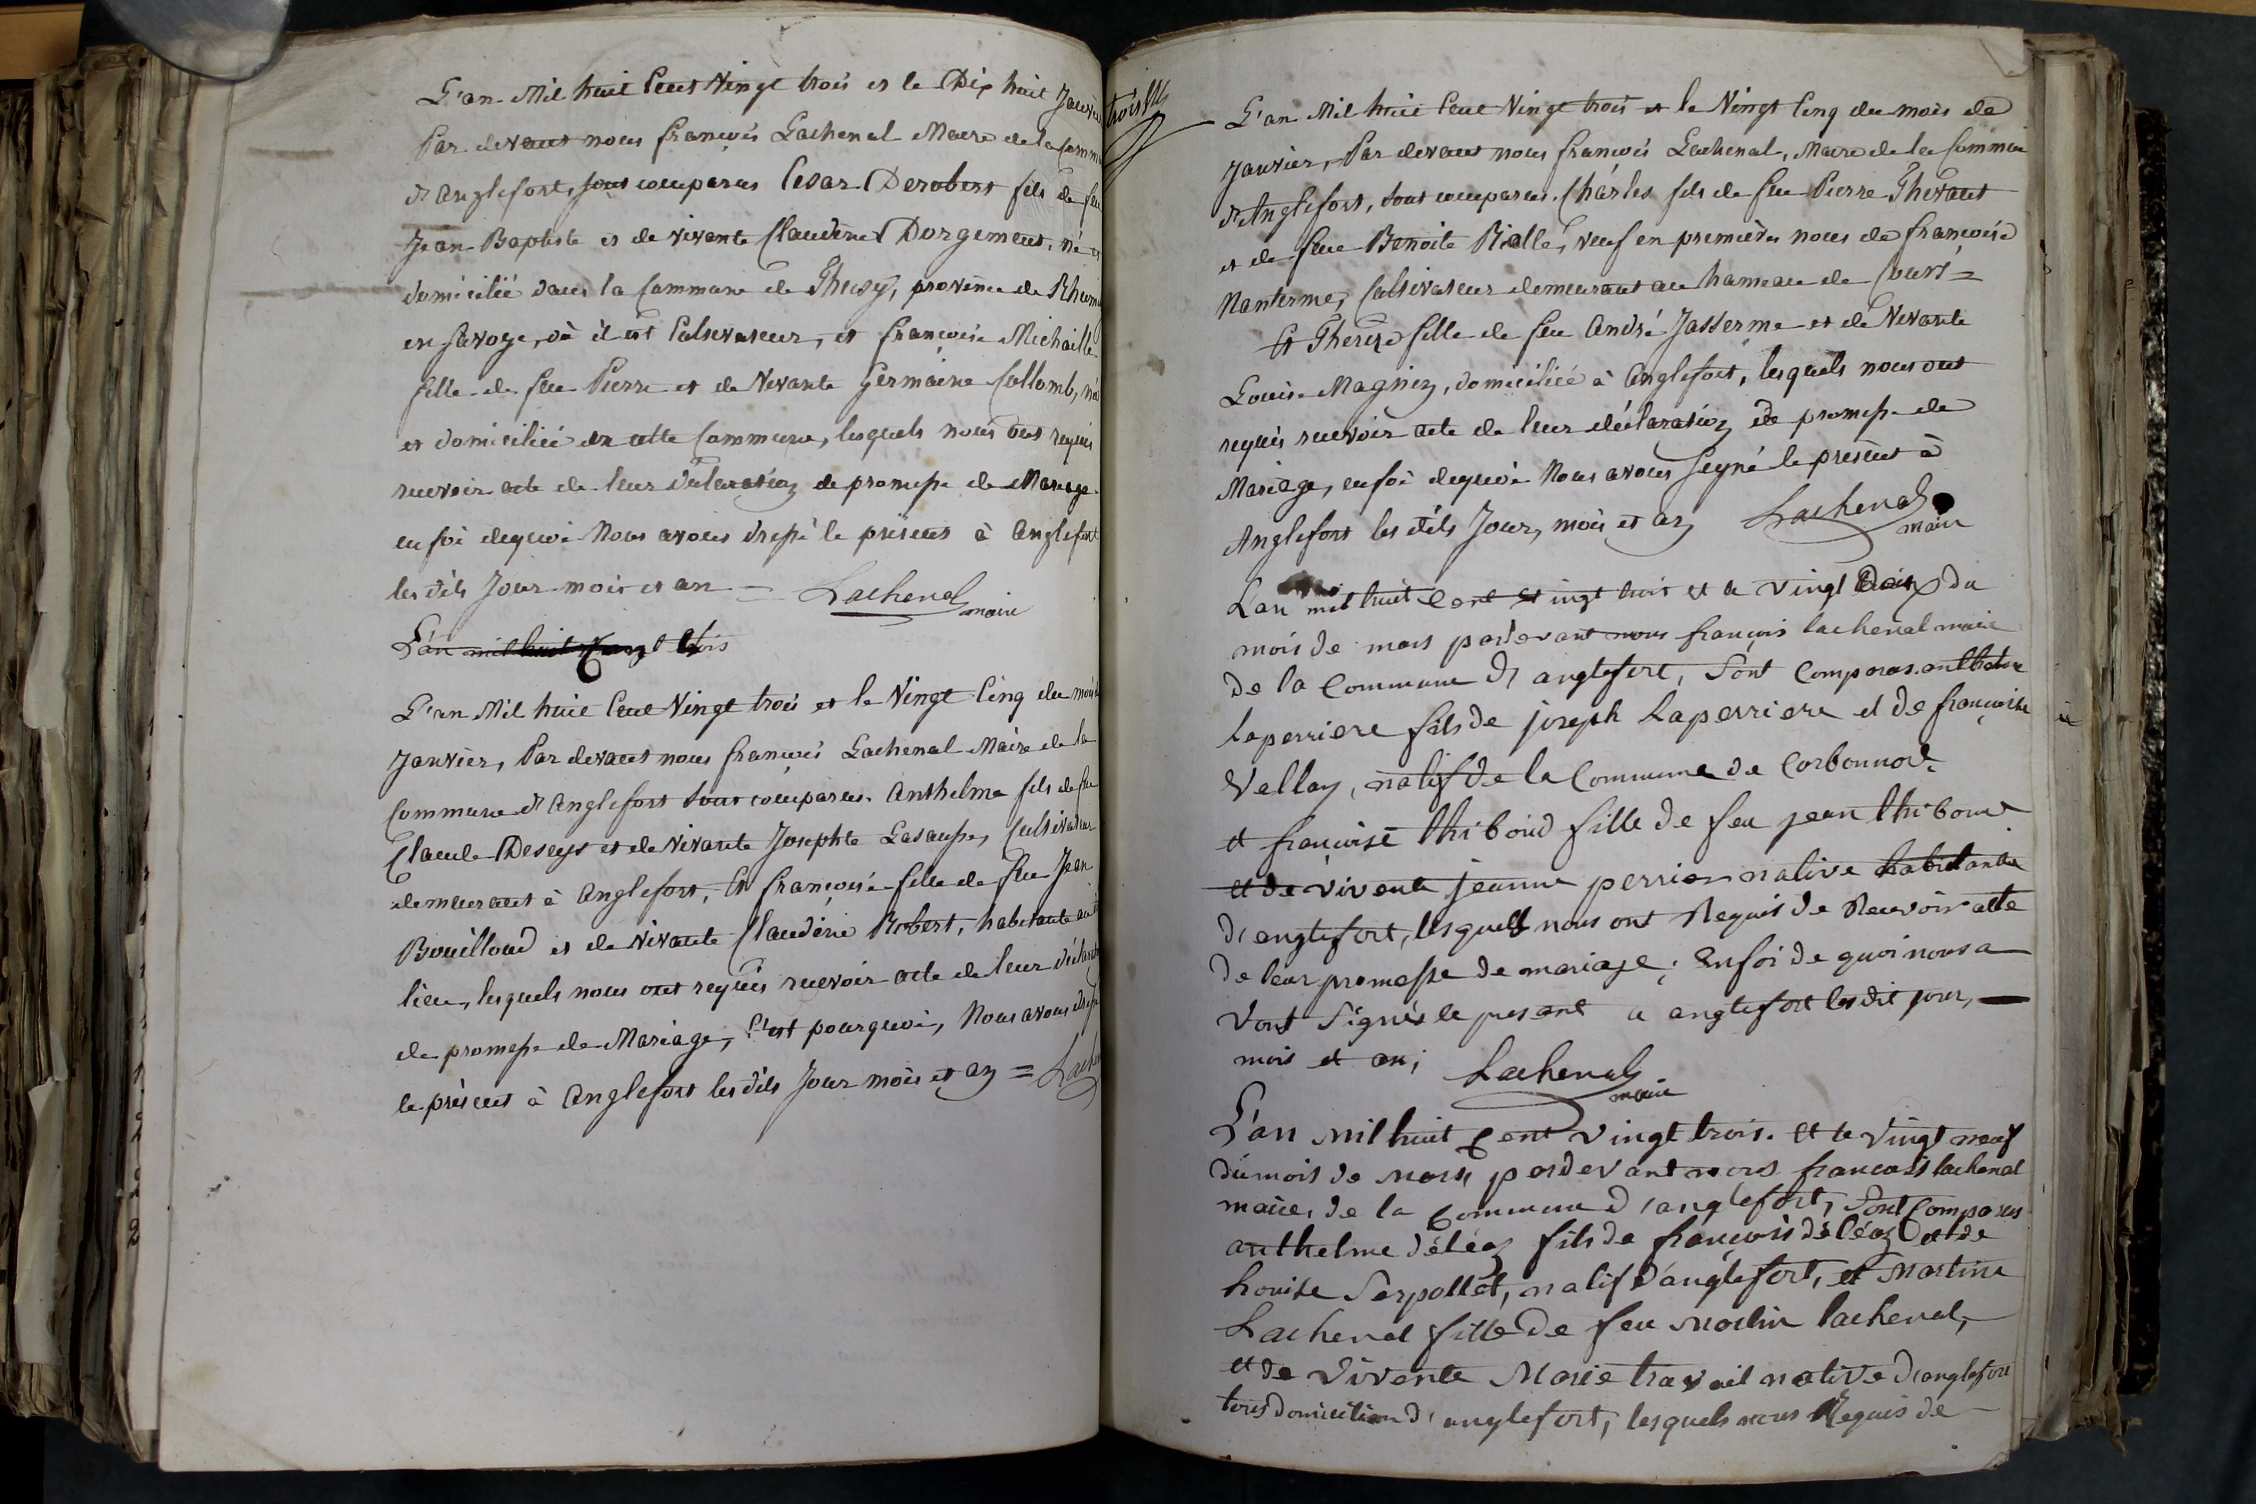 L'an Mil huit Cent Vingt trois et le Dix huit Janvier
Par devant nous françois Lachenal Maire de la Comm
d'Anglefort, sont comparus Cesar Derobert fils de feu
Jean Baptiste et de vivante Claudine Dorgement, né et
domicilié dans la Commune de Thusy, province de Rhum
en Savoye, où il est Cultivateur, et françoise Michaille
fille de feu Pierre et de Vivante Germaine Collomb, née
et domiciliée en cette Commune, lesquels nous ont requis
recevoir acte de leur déclaration de promesse de Mariage
en foi dequoi Nous avons dressé le présent à Anglefort
les dits Jour mois et an = Lachenal
maire
L'an mil huit vingt trois
L'an Mil huit Cent Vingt trois et le Vingt Cinq du mois
Janvier, Par devant nous françois Lachenal Maire de la
Commune d'Anglefort sont comparus Anthelme fils de feu
Claude Deseys et de vivante Josephte Lasausse, Cultivateur
demeurant à Anglefort, Et françoise fille de feu Jean
Bouilloud et de Vivante Claudine Robert, habitante au
lieu, lesquels nous ont requis recevoir acte de leur déclarat
de promesse de Mariage, C'est pourquoi, Nous avons dressé
le présent à Anglefort les dits Jour mois et an = Lache
trois
L'an Mil huit Cent Vingt trois et le Vingt Cinq du mois de
Janvier, Par devant nous françois Lachenal, Maire de la Commune
d'Anglefort, sont comparus Charles fils de feu Pierre Thevant
et de feue Benoite Rialle, veuf en premières noces de françoise
Nanterme, Cultivateur demeurant au hameau de Cours =
Et Thereze fille de feu André Jasserme et de Vivante
Louise Magnin, domiciliée à Anglefort, lesquels nous ont
requis recevoir acte de leur déclaration de promesse de
Mariage, en foi dequoi Nous avons signé le présent à
Anglefort les dits Jour, mois et an Lachenal
maire
L'an mil huit cent vingt trois et le vingt du
mois de mars pardevant nous françois lachenal maire
de la Commune d'anglefort, sont Comparus anthelme
laperriere fils de joseph Laperriere et de françoise
Vellay, natif de la Commune de Corbonnod
et françoise thiboud fille de feu jean thiboud
et de vivente jeanne perrier native habitante
d'anglefort, lesquels nous ont Requis de Recevoir acte
de leur promesse de mariage; Enfoi de quoi nous a
vons signés le present a anglefort les dit jour,
mois et an; Lachenal
maire
L'an mil huit Cent vingt trois. et le vingt neuf
du mois de mars pardevant nous francois lachenal
maire, de la Commune d'anglefort, sont Comparus
anthelme déléaz fils de françois déléaz et de
Louise Serpollet, natif d'anglefort, et Martine
Lachenal fille de feu Martin lachenal,
et de Vivente Marie travail native d'anglefort
tous domicilier d'anglefort, lesquels nous Requis de